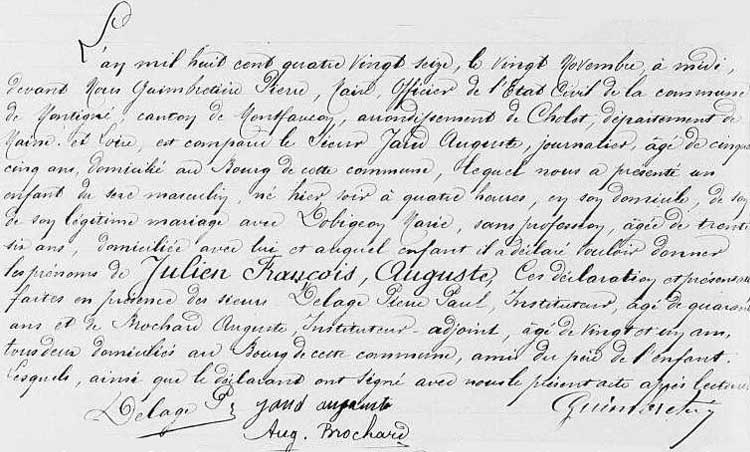 L'an mil huit cent quatre vingt seize, le vingt Novembre, à midi,
devant Nous Guimbretière Pierre, Maire, Officier de l'Etat Civil de la commune
de Montigné, canton de Montfaucon, arrondissement de Cholet, département de
Maine-et-Loire, est comparu le Sieur Jand Auguste, journalier, âgé de cinqu
cinq ans, domicilié au Bourg de cette commune, lequel nous a présenté un
enfant du sexe masculin, né hier soir à quatre heures, en son domicile, de
de son légitime mariage avec Lobigeon Marie, sans profession, âgée de trente
six ans, domiciliée avec lui et auquel enfant il a déclaré vouloir donner
les prénoms de Julien François, Auguste, Ces déclaration et présent
faites en présence des sieurs Delage Pierre Paul, Instituteur, âgé de quaran
ans et de Brochard Auguste, Instituteur-adjoint, âgé de vingt et un ans,
tous deux domiciliés au Bourg de cette commune, amis du père de l'enfant.
Lesquels, ainsi que le déclarant ont signé avec nous le présent acte après lecture
Delage P. jand auguste
Aug. Brochard